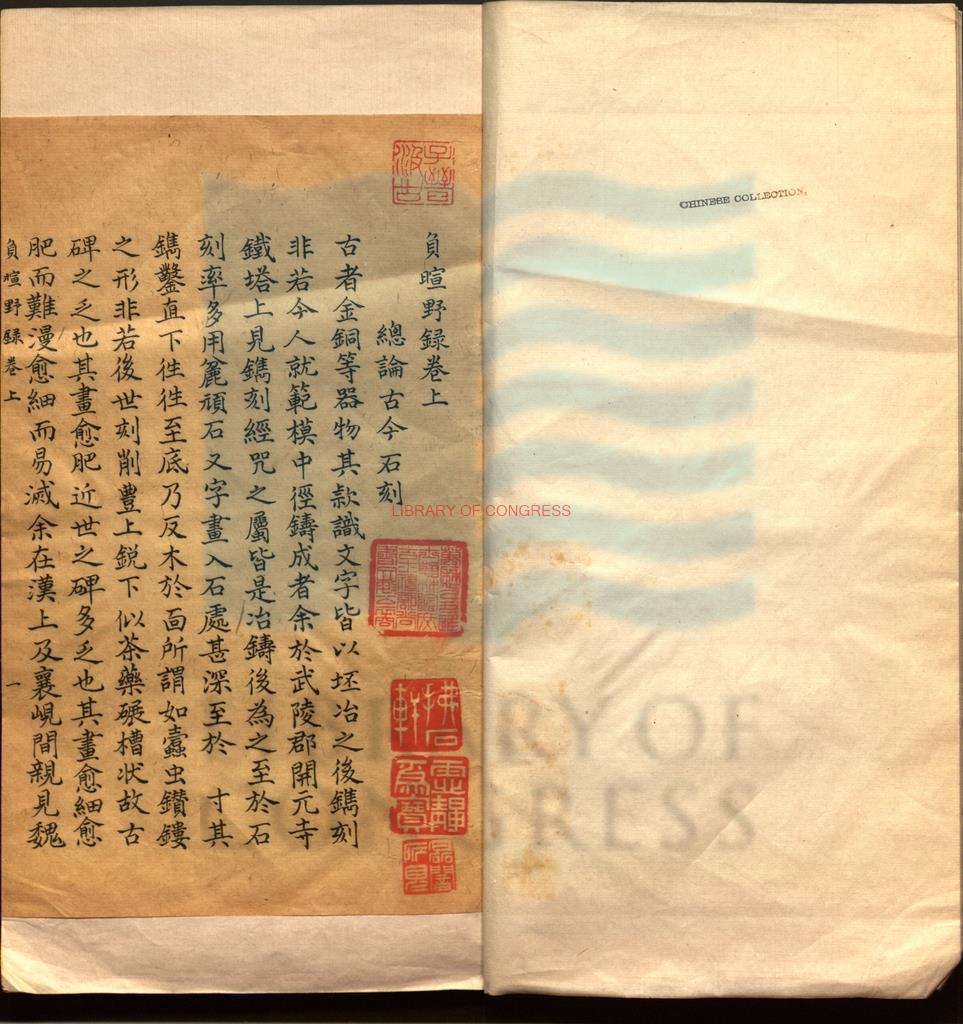 CHINESE COLLECTION.
負暄野録卷上
總論古今石刻
古者金銅等器物其款識文字皆以坯冶之後鐫刻
非若今人就範模中徑鑄成者余於武陵郡開元寺
鐵塔上見鐫刻經咒之屬皆是冶鑄後為之至於石
刻率多用麄頑石又字畫入石處甚深至於 寸其
鐫鑿直下徃徃至底乃反木於面所謂如蠹虫鑚鏤
之形非若後世刻削豐上鋭下似茶藥碾槽状故古
碑之乏也其畫愈肥近世之碑多乏也其畫愈細愈
肥而難漫愈細而易滅余在漢上及襄峴間親見魏
負暄野録卷上 一
子晉
汲古
拂石軒
LIBRARY OF CONGRESS
LIBRARY OF CONGRESS